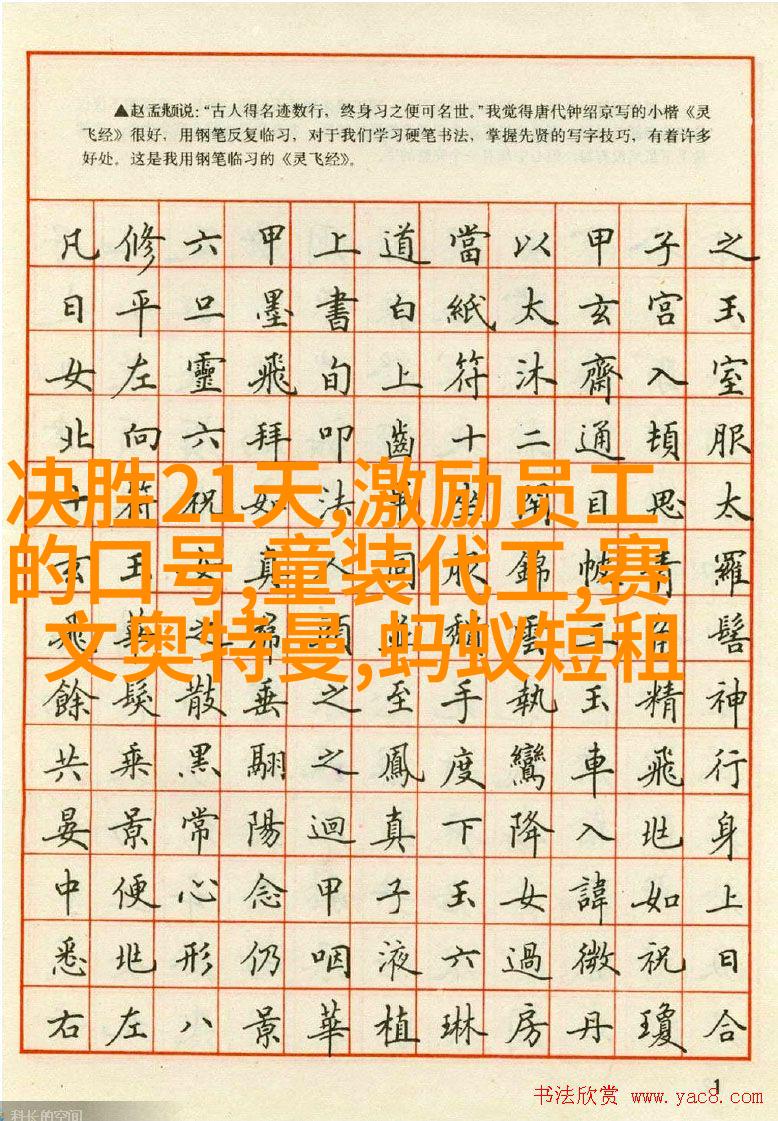 ▲赵孟頫说：“古人得名迹数行，终身习之便可名世。”我觉得唐代钟绍京写的小楷《灵
飞经》很好，用钢笔反复临习，对于我们学习硬笔书法，掌握先贤的写字技巧，有着许多
好处。这是我用钢笔临习的《灵飞经》。
凡修六甲上道當以甲子之
日平旦墨書白紙太玄宮玉
女左靈飛旬上符沐齋入室
北向六拜叩齒十二通頓服
十符祝如法目思太
玄玉女真人同服錦帔青羅
飛華之裙頭並頹雲三角髻
餘髮散垂之至手執玉精神
共乘黑翮之鳳度鸞車飛行
晏景常陽迴真下降入兆身
中便心念甲子玉女諱如上
悉兆形仍咽液六過微祝日
右左八景華植琳房丹瓊合
决胜21天,激励员工
的口号,童装代工,赛
文奥特曼,蚂蚁短租
1
书法欣赏 www.yac8.com
科长的空间